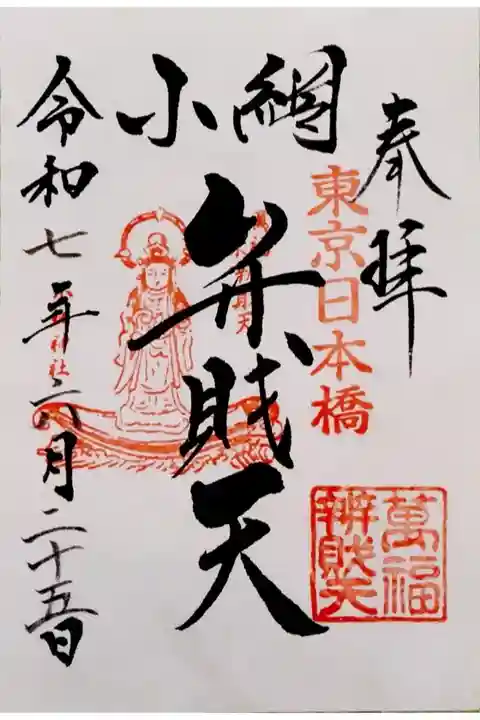 奉拝
東京日本橋
萬福
辨財天
小網
弁財天
令和七年六月二十五日